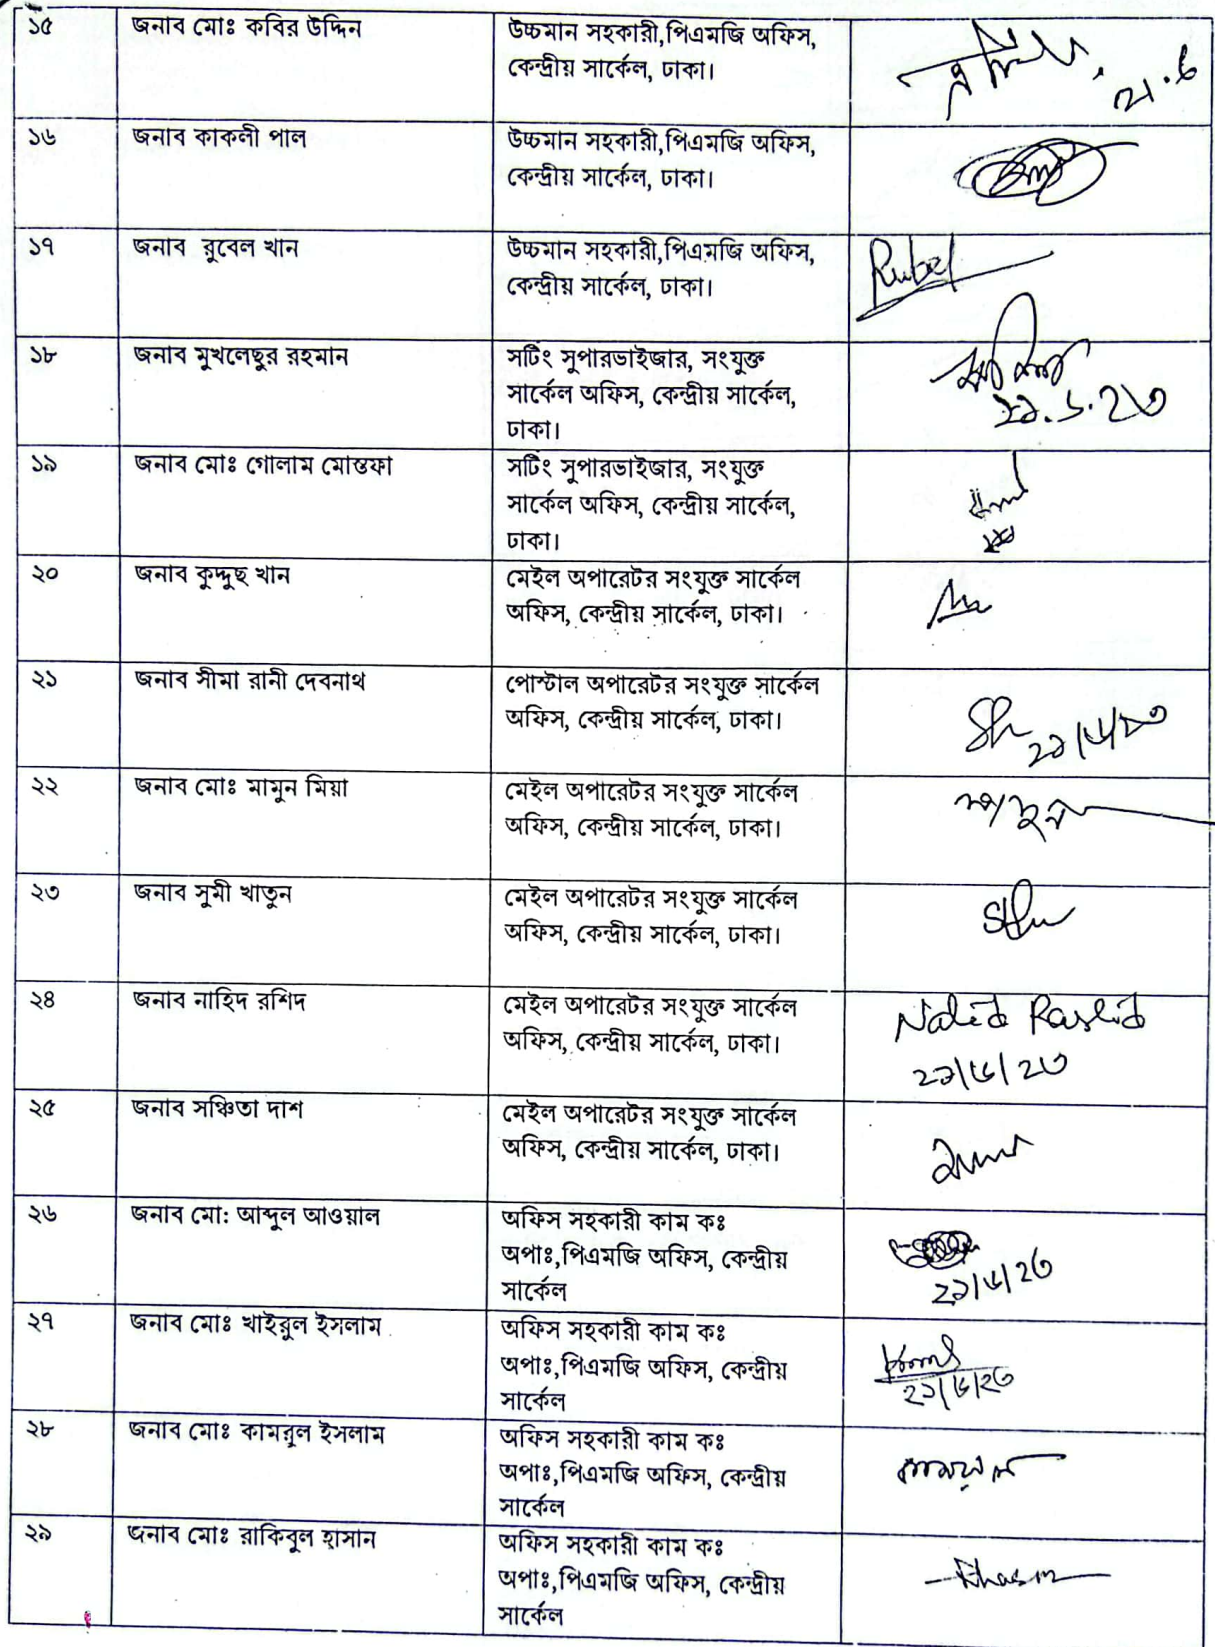 ১৫ জনাব মোঃ কবির উদ্দিন উচ্চমান সহকারী,পিএমজি অফিস,
কেন্দ্রীয় সার্কেল, ঢাকা।
১৬ জনাব কাকলী পাল উচ্চমান সহকারী,পিএমজি অফিস,
কেন্দ্রীয় সার্কেল, ঢাকা।
১৭ জনাব রুবেল খান উচ্চমান সহকারী,পিএমজি অফিস, Rubel
কেন্দ্রীয় সার্কেল, ঢাকা।
১৮ জনাব মুখলেছুর রহমান সটিং সুপারভাইজার, সংযুক্ত
সার্কেল অফিস, কেন্দ্রীয় সার্কেল,
ঢাকা।
১৯ জনাব মোঃ গোলাম মোস্তফা সটিং সুপারভাইজার, সংযুক্ত
সার্কেল অফিস, কেন্দ্রীয় সার্কেল,
ঢাকা।
২০ জনাব কুদ্দুছ খান মেইল অপারেটর সংযুক্ত সার্কেল
অফিস, কেন্দ্রীয় সার্কেল, ঢাকা।
২১ জনাব সীমা রানী দেবনাথ পোস্টাল অপারেটর সংযুক্ত সার্কেল
অফিস, কেন্দ্রীয় সার্কেল, ঢাকা।
২২/৬/২৩
২২ জনাব মোঃ মামুন মিয়া মেইল অপারেটর সংযুক্ত সার্কেল মামুন
অফিস, কেন্দ্রীয় সার্কেল, ঢাকা।
২৩ জনাব সুমী খাতুন মেইল অপারেটর সংযুক্ত সার্কেল
অফিস, কেন্দ্রীয় সার্কেল, ঢাকা।
২৪ জনাব নাহিদ রশিদ মেইল অপারেটর সংযুক্ত সার্কেল Nahid Rashid
অফিস, কেন্দ্রীয় সার্কেল, ঢাকা। ২২/৬/২৩
২৫ জনাব সঞ্চিতা দাশ মেইল অপারেটর সংযুক্ত সার্কেল
অফিস, কেন্দ্রীয় সার্কেল, ঢাকা।
২৬ জনাব মো: আব্দুল আওয়াল অফিস সহকারী কাম কঃ
অপাঃ,পিএমজি অফিস, কেন্দ্রীয়
সার্কেল ২২/৬/২৩
২৭ জনাব মোঃ খাইরুল ইসলাম অফিস সহকারী কাম কঃ
অপাঃ,পিএমজি অফিস, কেন্দ্রীয়
সার্কেল ২২/৬/২৩
২৮ জনাব মোঃ কামরুল ইসলাম অফিস সহকারী কাম কঃ
অপাঃ,পিএমজি অফিস, কেন্দ্রীয় কামরুল
সার্কেল
২৯ জনাব মোঃ রাকিবুল হাসান অফিস সহকারী কাম কঃ
অপাঃ,পিএমজি অফিস, কেন্দ্রীয়
সার্কেল